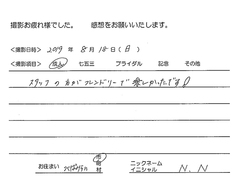 撮影お疲れ様でした。 感想をお願いいたします。
<撮影日時> 2019年 8月 18日(日)
<撮影項目> 成人 七五三 ブライダル 記念 その他
スタッフの方がフレンドリーで楽しかったです!
お住まい つくばみらい 市 町 村 ニックネーム イニシャル N.N